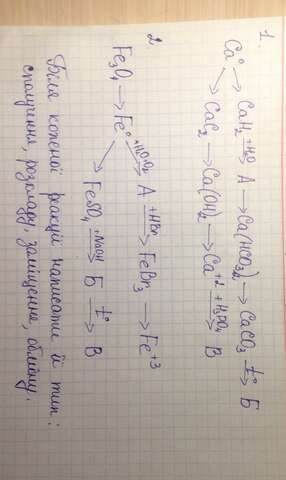 1.
Ca⁰ → CaH₂ +H₂O → А → Ca(HCO₃)₂ → CaCO₃ t° → Б
CaC₂ → Ca(OH)₂ → Ca⁺² +H₃PO₄ → В
2
+H₂O+O₂ А +HBr → FeBr₃ → Fe⁺³
Fe₃O₄ → Fe⁰
FeSO₄ +NaOH → Б t° → В
Біля кожної реакції написати її тип:
сполучення, розкладу, заміщення, обміну.